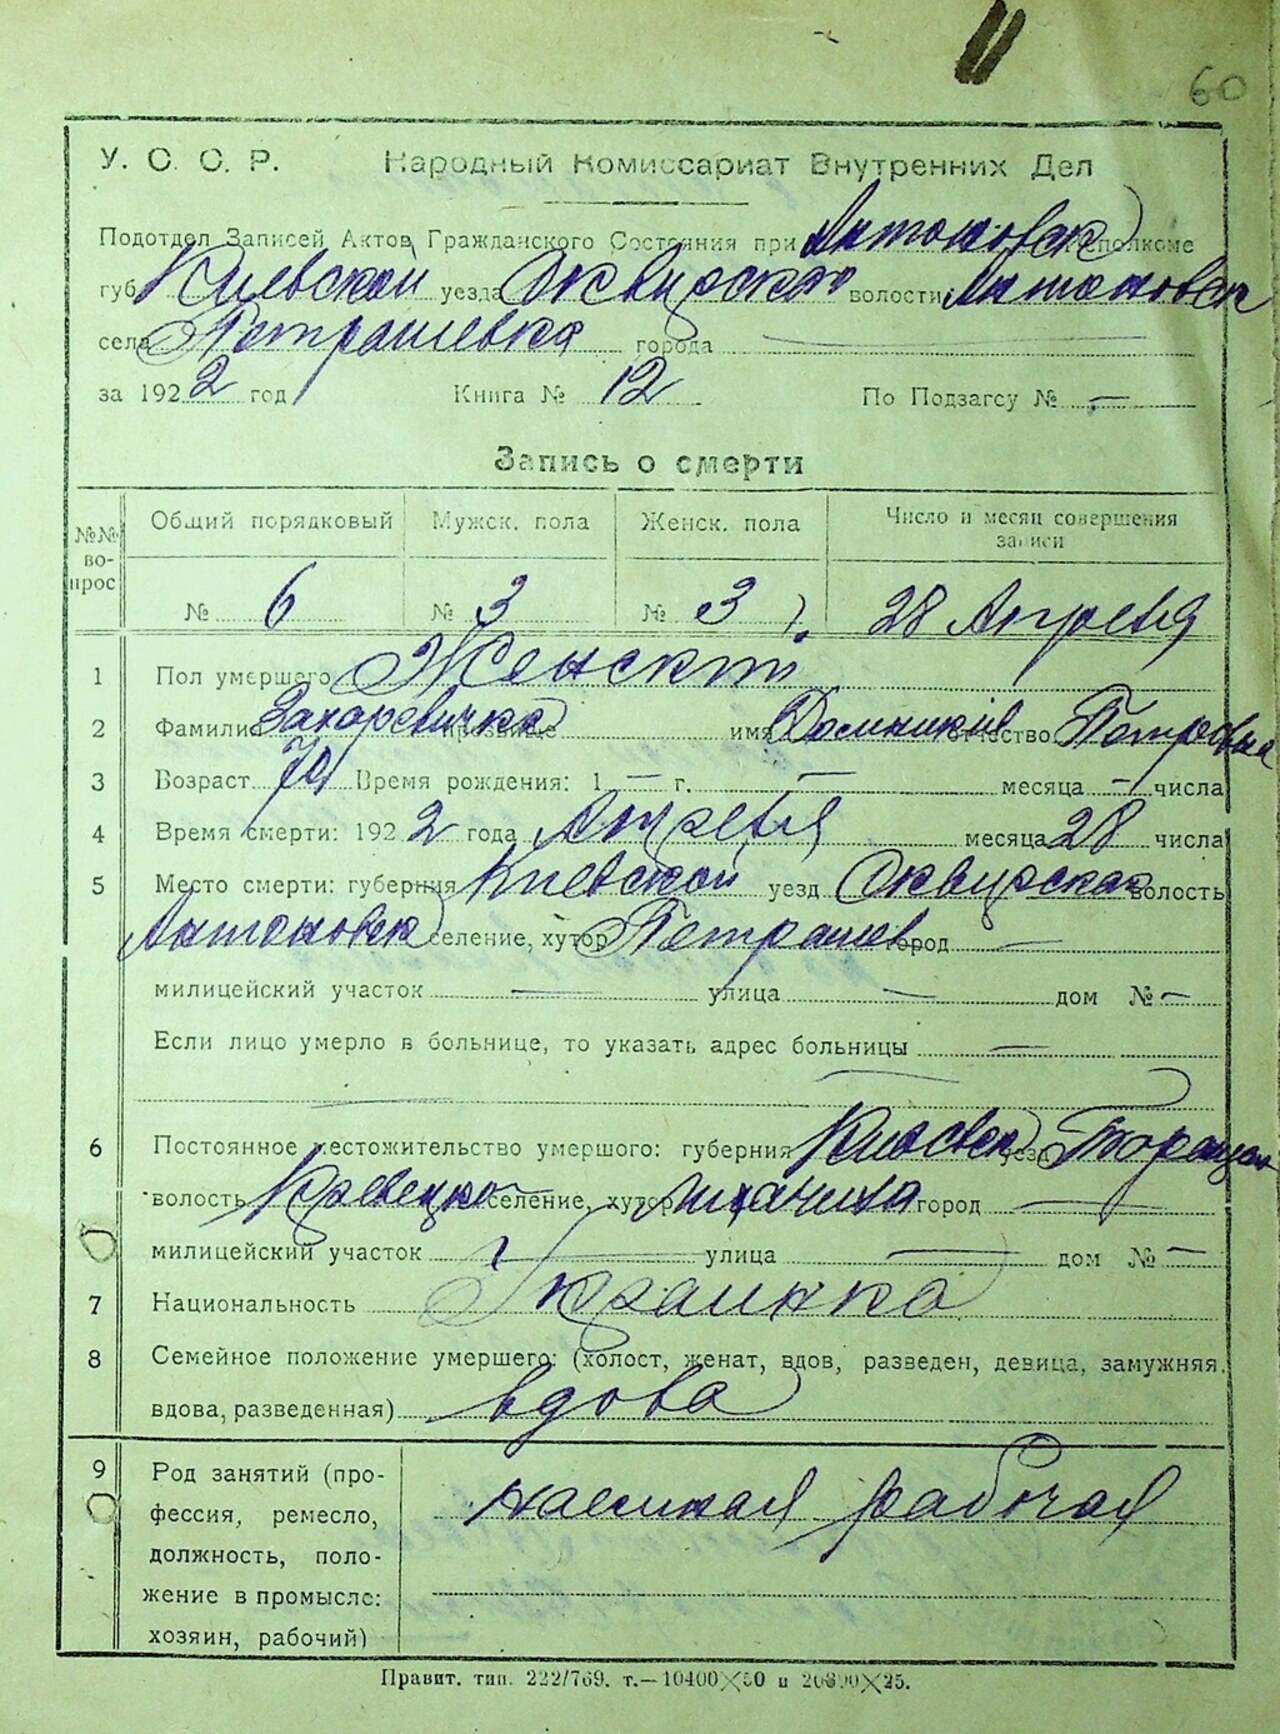 60
У. С. С. Р. Народный Комиссариат Внутренних Дел
Подотдел Записей Актов Гражданского Состояния при Антоновск исполкоме
губ. Киевской уезда Сквирского волости Антоновск
села Петрашевка города —
за 1922 год Книга № 12 По Подзагсу № —
Запись о смерти
№№ вопрос Общий порядковый Мужск. пола Женск. пола Число и месяц совершения записи
№ 6 № 3 № 3 28 Апреля
1 Пол умершего Женский
2 Фамилия Захаревичка прозвище имя отчество Петровна
3 Возраст 70 Время рождения: 1 — г. — месяца — числа
4 Время смерти: 1922 года Апреля месяца 28 числа
5 Место смерти: губерния Киевской уезд Сквирская волость
Антоновск селение, хутор Петрашев город —
милицейский участок — улица — дом № —
Если лицо умерло в больнице, то указать адрес больницы —
6 Постоянное местожительство умершого: губерния Киевск уезд
волость селение, хутор город —
милицейский участок — улица — дом № —
7 Национальность Украинка
8 Семейное положение умершего: (холост, женат, вдов, разведен, девица, замужняя.
вдова, разведенная) вдова
9 Род занятий (про-
фессия, ремесло,
должность, поло-
жение в промысле:
хозяин, рабочий)
наемная рабочая
Правит. тип. 222/769. т.—10400×50 и 20800×25.